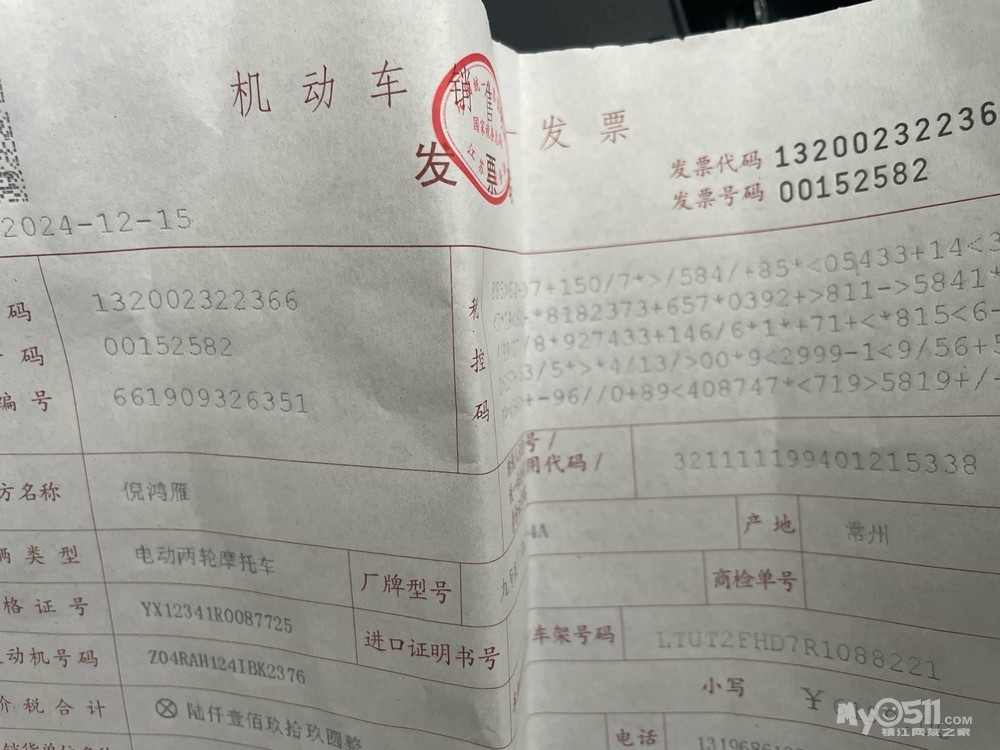 机动车销售 一发票
发票
发票代码 132002322366
发票号码 00152582
2024-12-15
码 132002322366
码 00152582
编号 661909326351
控
码
7+150/7*>/584/+85*<05433+14<3
*8182373+657*0392+>811->5841*
/8*927433+146/6*1*+71+<*815<6-
3/5*>*4/13/>00*9<2999-1<9/56+5
+-96//0+89<408747*<719>5819+/-
方名称 倪鸿雁
号/
用代码/ 321111199401215338
辆类型 电动两轮摩托车 厂牌型号 九 4A 产地 常州
格证号 YX12341R0087725 进口证明书号 商检单号
动机号码 Z04RAH124IBK2376 车架号码 LTUT2FHD7R1088221
价税合计 ⊗ 陆仟壹佰玖拾玖圆整 小写 ￥
电话
My0511.COM
镇江网友之家